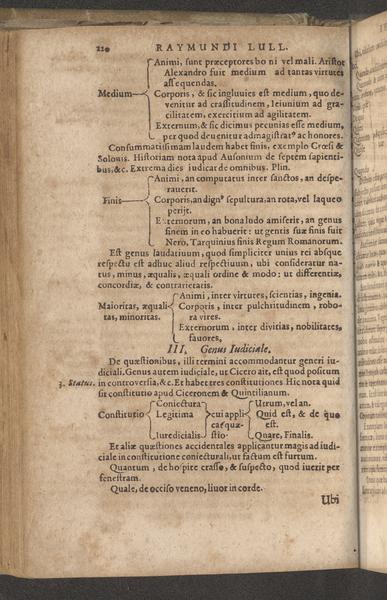 220 RAYMUNDI LULL.
Animi, sunt præceptores boni vel mali. Aristot
Alexandro fuit medium ad tantas virtutes
assequendas.
Medium Corporis, & sic ingluvies est medium, quo de-
venitur ad crassitudinem, Ieiunium ad gra-
cilitatem, exercitium ad agilitatem.
Externum, & sic dicimus pecunias esse medium,
per quod devenitur ad magistratº ac honores.
Consummatissimam laudem habet finis, exemplo Crœsi &
Solonis. Historiam nota apud Ausonium de septem sapienti-
bus, &c. Extrema dies iudicat de omnibus. Plin.
Animi, an computatus inter sanctos, an despe-
raverit.
Finis Corporis, an dignº sepultura, an rota, vel laqueo
perijt.
Externorum, an bona ludo amiserit, an genus
finem in eo habuerit: ut gentis suæ finis fuit
Nero, Tarquinius finis Regum Romanorum.
Est genus laudatiuum, quod simpliciter unius rei absque
respectu est adhuc aliud respectiuum, ubi consideratur na-
tus, minus, æqualis, æquali ordine & modo: ut differentiæ,
concordiæ, & contrarietatis.
Animi, inter virtutes, scientias, ingenia.
Maioritas, æquali- Corporis, inter pulchritudinem, robo-
tas, minoritas. ra vires.
Externorum, inter divitias, nobilitates,
favores,
III. Genus Iudiciale.
De quæstionibus, illi termini accommodantur generi iu-
diciali. Genus autem iudiciale, ut Cicero ait, est quod positum
3. Status. in controversia, &c. Et habet tres constitutiones. Hic nota quid
sit constitutio apud Ciceronem & Quintilianum.
Coniectura Utrum, vel an.
Constitutio Legitima cui appli- Quid est, & de quo
catquæ- est.
Iuredicialis stio. Quare, Finalis.
Et aliæ quæstiones accidentales applicantur magis ad iudi-
ciale in constitutione coniecturali, ut factum est furtum.
Quantum, de hospite crasso, & suspecto, quod iuerit per
fenestram.
Quale, de occiso veneno, livor in corde.
Ubi